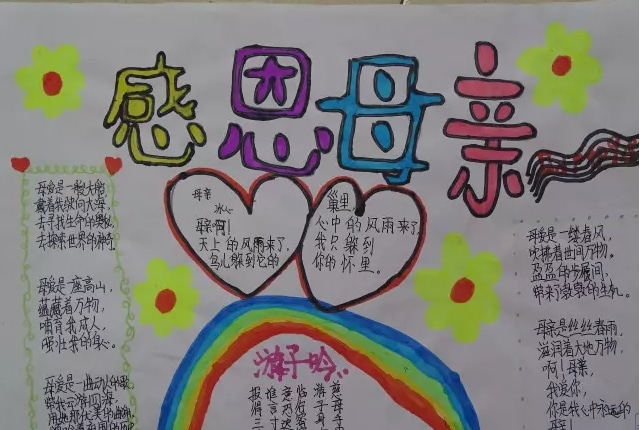 感恩母亲
母爱是一艘大船
载着我驶向大海,
去寻找生命的奥秘,
去探索世界的神奇。
母爱是一座高山,
蕴藏着万物,
哺育我成人,
强壮我的身心。
母爱是一曲动人的歌
带我云游四海,
母亲
冰心
母亲啊!
天上的风雨来了,
鸟儿躲到它的
巢里,
心中的风雨来了
我只躲到
你的怀里。
游子吟
慈母手
游子身
临行
意恐
谁言寸
报得三
母爱是一缕春风,
吹拂着世间万物。
带来了勃勃的生机。
母亲是丝丝春雨,
滋润着大地万物,
啊!母亲,
我爱你,
你是我心中永远的
母亲!